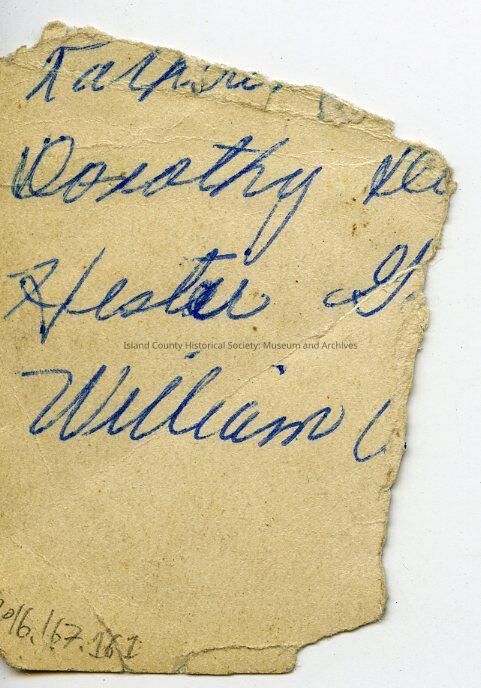 Dorothy
Hester G.
Island County Historical Society: Museum and Archives
William
2016.167.161